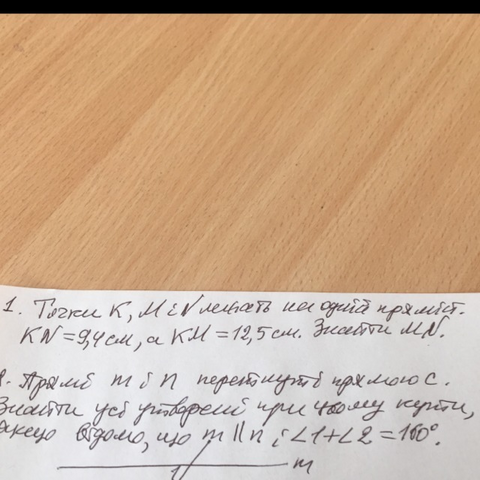 1. Точки K, M і N лежать на одній прямій.
KN = 9,4 см, а KM = 12,5 см. Знайти MN.
Прямі m і n перетнуті прямою c.
Знайти усі утворені при цьому кути,
якщо відомо, що m || n і ∠1+∠2 = 160°.
1 m